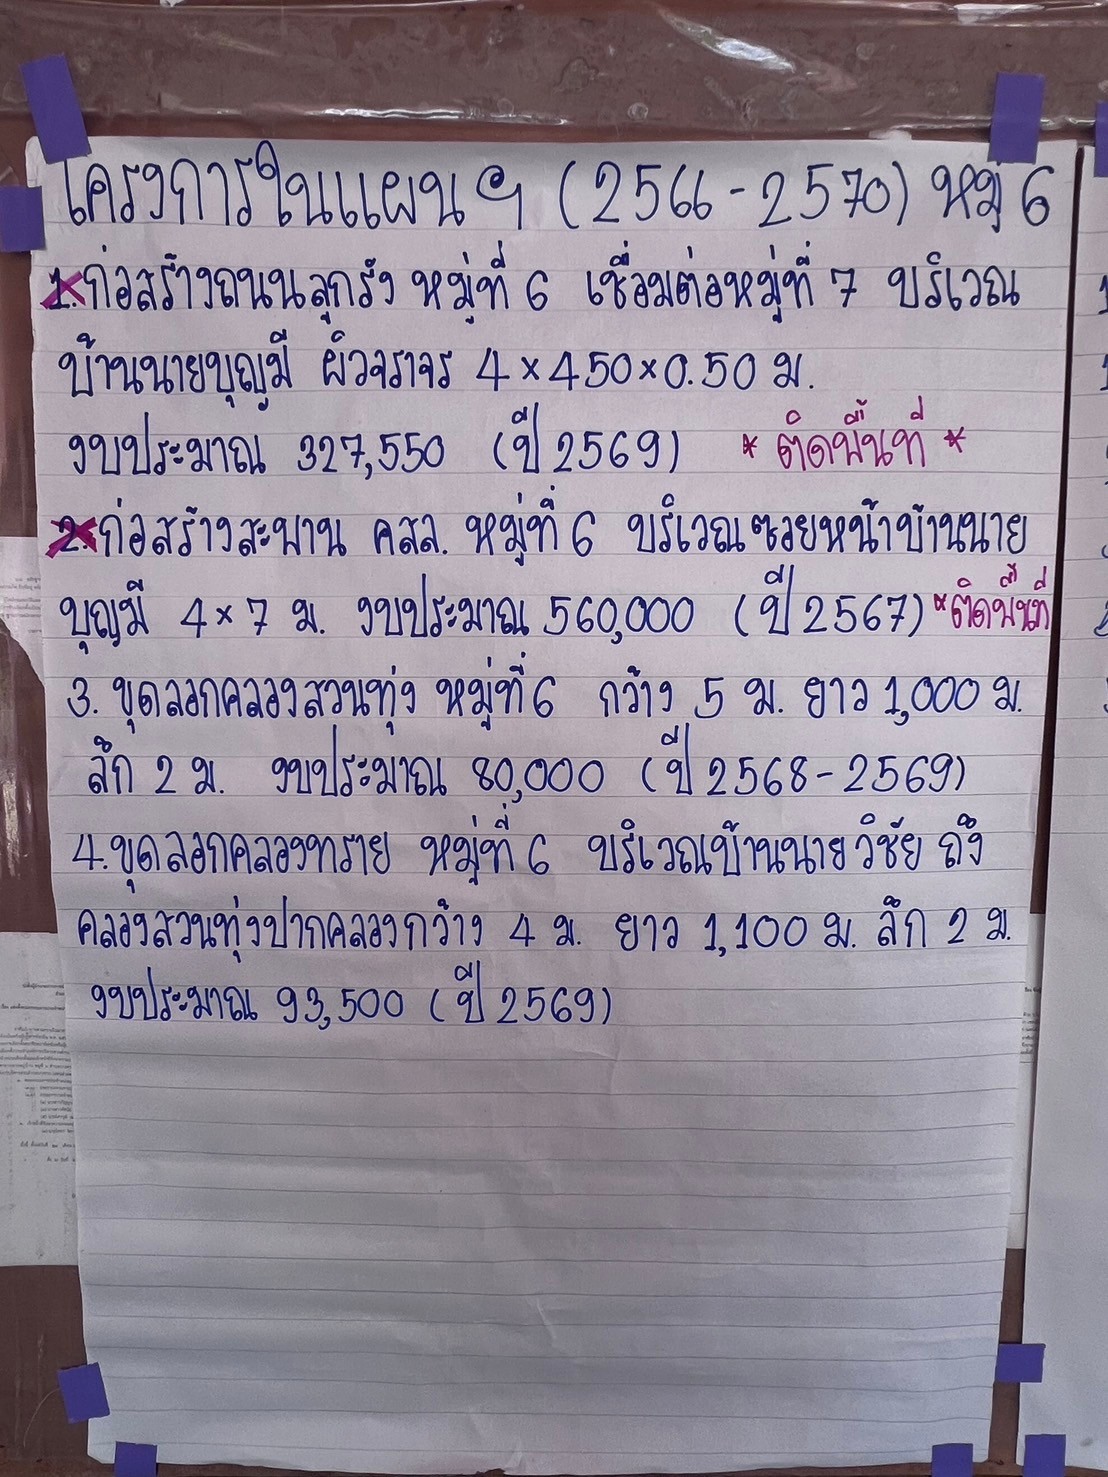 โครงการในแผน ฯ (2566-2570) หมู่ 6
1. ก่อสร้างถนนลูกรัง หมู่ที่ 6 เชื่อมต่อหมู่ที่ 7 บริเวณ
บ้านนายบุญมี ผิวจราจร 4×450×0.50 ม.
งบประมาณ 327,550 (ปี 2569) * ติดพื้นที่ *
2. ก่อสร้างสะพาน คสล. หมู่ที่ 6 บริเวณซอยหน้าบ้านนาย
บุญมี 4×7 ม. งบประมาณ 560,000 (ปี 2567) *ติดพื้นที่
3. ขุดลอกคลองสวนทุ่ง หมู่ที่ 6 กว้าง 5 ม. ยาว 1,000 ม.
ลึก 2 ม. งบประมาณ 80,000 (ปี 2568-2569)
4. ขุดลอกคลองทราย หมู่ที่ 6 บริเวณบ้านนายวิชัย ถึง
คลองสวนทุ่งปากคลองกว้าง 4 ม. ยาว 1,100 ม. ลึก 2 ม.
งบประมาณ 93,500 (ปี 2569)